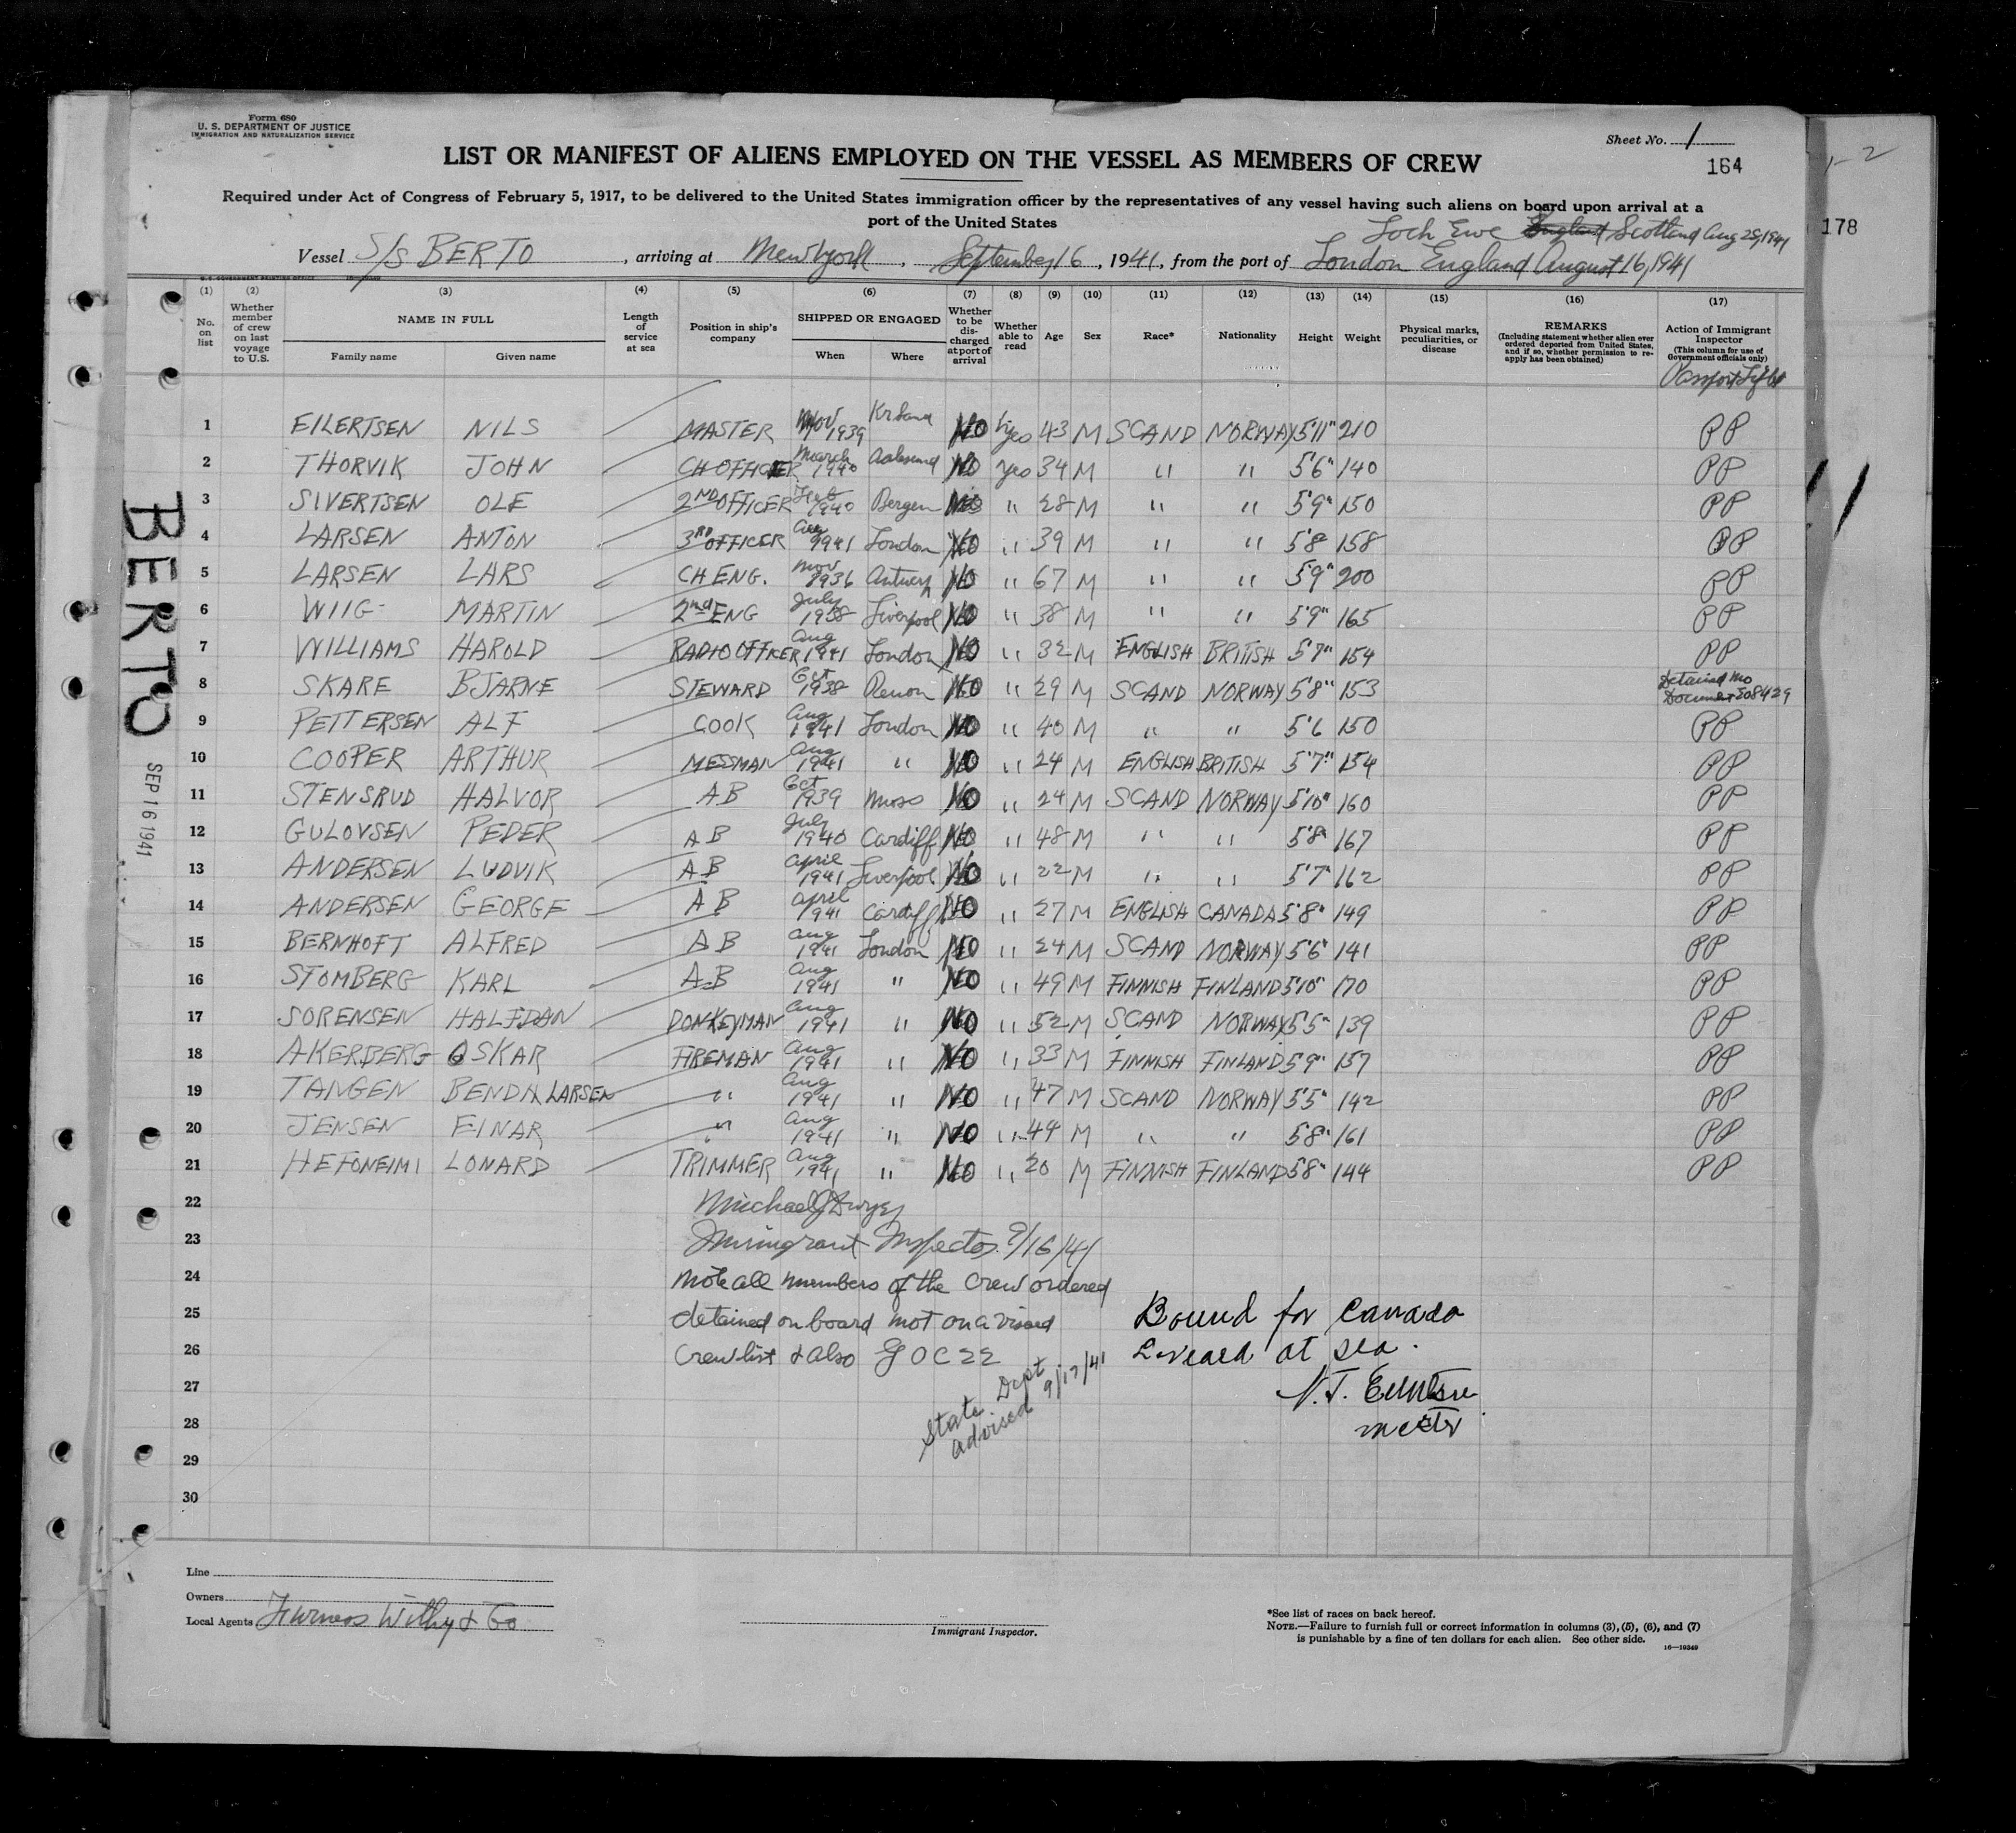 Form 680
U. S. DEPARTMENT OF JUSTICE
IMMIGRATION AND NATURALIZATION SERVICE
Sheet No. 1
164
1-2
178
LIST OR MANIFEST OF ALIENS EMPLOYED ON THE VESSEL AS MEMBERS OF CREW
Required under Act of Congress of February 5, 1917, to be delivered to the United States immigration officer by the representatives of any vessel having such aliens on board upon arrival at a
port of the United States
Loch Ewe England Scotland Aug 28, 1941
Vessel S/S BERTO, arriving at New York, September 16, 1941, from the port of London England August 16, 1941
U. S. GOVERNMENT PRINTING OFFICE
(1) No. on list
(2) Whether member of crew on last voyage to U.S.
(3) NAME IN FULL Family name Given name
(4) Length of service at sea
(5) Position in ship's company
(6) SHIPPED OR ENGAGED When Where
(7) Whether to be discharged at port of arrival
(8) Whether able to read
(9) Age
(10) Sex
(11) Race*
(12) Nationality
(13) Height
(14) Weight
(15) Physical marks, peculiarities, or disease
(16) REMARKS (Including statement whether alien ever ordered deported from United States, and if so, whether permission to reapply has been obtained)
(17) Action of Immigrant Inspector (This column for use of Government officials only)
1 EILERTSEN NILS MASTER Nov 1939 Kr Sand NO Yes 43 M SCAND NORWAY 5'11" 210 PP
2 THORVIK JOHN CH OFFICER March 1940 Aalesund NO Yes 34 M " " 5'6" 140 PP
3 SIVERTSEN OLE 2ND OFFICER Feb 1940 Bergen NO " 28 M " " 5'9" 150 PP
4 LARSEN ANTON 3RD OFFICER Aug 1941 London NO " 39 M " " 5'8" 158 PP
5 LARSEN LARS CH ENG. Nov 1936 Antwerp NO " 67 M " " 5'9" 200 PP
6 WIIG MARTIN 2nd ENG July 1938 Liverpool NO " 38 M " " 5'9" 165 PP
7 WILLIAMS HAROLD RADIO OFFICER Aug 1941 London NO " 32 M ENGLISH BRITISH 5'7" 154 PP
8 SKARE BJARNE STEWARD Oct 1938 NO " 29 M SCAND NORWAY 5'8" 153 Detained no Document 508429
9 PETTERSEN ALF COOK Aug 1941 London NO " 40 M " " 5'6 150 PP
10 COOPER ARTHUR MESSMAN Aug 1941 " NO " 24 M ENGLISH BRITISH 5'7" 154 PP
11 STENSRUD HALVOR AB Oct 1939 Moss NO " 24 M SCAND NORWAY 5'10" 160 PP
12 GULOVSEN PEDER AB July 1940 Cardiff NO " 48 M " " 5'8" 167 PP
13 ANDERSEN LUDVIK AB April 1941 Liverpool NO " 22 M " " 5'7" 162 PP
14 ANDERSEN GEORGE AB April 1941 Cardiff NO " 27 M ENGLISH CANADA 5'8" 149 PP
15 BERNHOFT ALFRED AB Aug 1941 London NO " 24 M SCAND NORWAY 5'6" 141 PP
16 STOMBERG KARL AB Aug 1941 " NO " 49 M FINNISH FINLAND 5'10" 170 PP
17 SORENSEN HALFDAN DONKEYMAN Aug 1941 " NO " 52 M SCAND NORWAY 5'5" 139 PP
18 AKERBERG OSKAR FIREMAN Aug 1941 " NO " 33 M FINNISH FINLAND 5'9" 157 PP
19 TANGEN LARSEN " Aug 1941 " NO " 47 M SCAND NORWAY 5'5" 142 PP
20 JENSEN EINAR " Aug 1941 " NO " 44 M " " 5'8" 161 PP
21 HEFONEIMI LONARD TRIMMER Aug 1941 " NO " 20 M FINNISH FINLAND 5'8" 144 PP
22 Michael J Dwyer
23 Immigrant Inspector 9/16/41
24 Note all members of the crew ordered
25 detained on board not on a visaed
Bound for Canada
26 Crew list & also G O C 22
at sea.
27 State Dept
advised 9/17/41
28 master
29
30
BERTO
SEP 16 1941
Line
Owners
Local Agents Furness Withy & Co
Immigrant Inspector.
*See list of races on back hereof.
NOTE.—Failure to furnish full or correct information in columns (3), (5), (6), and (7)
is punishable by a fine of ten dollars for each alien. See other side.
16—19349